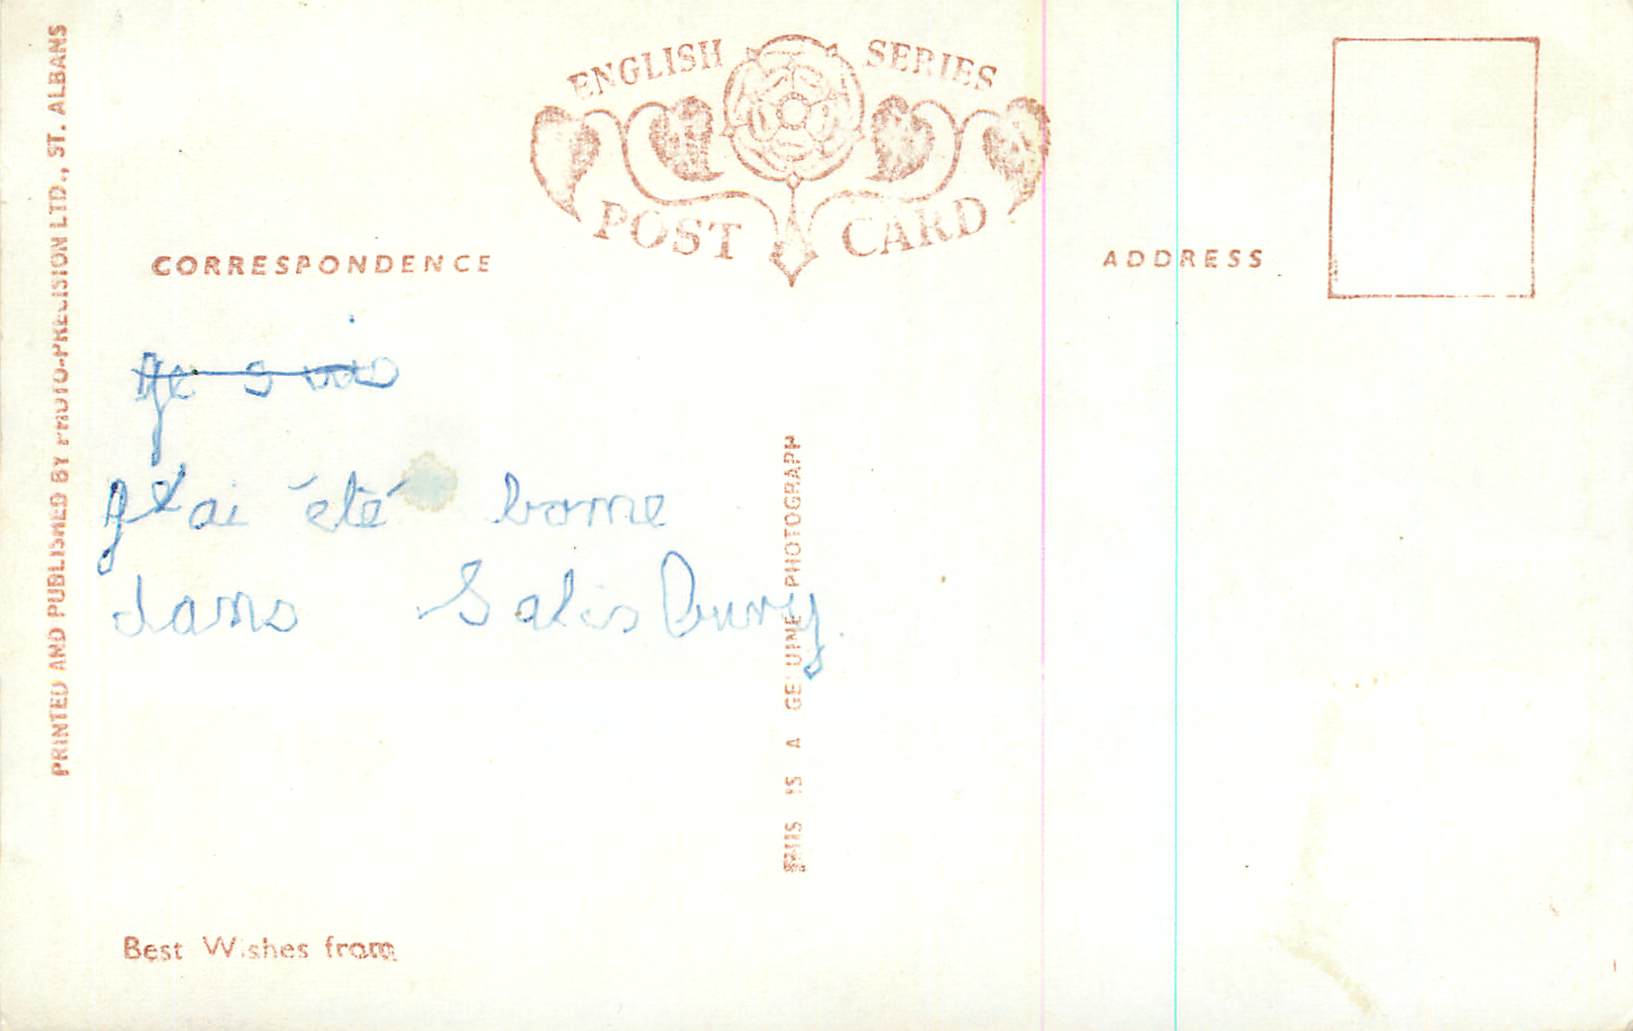 PRINTED AND PUBLISHED BY PHOTO-PRECISION LTD., ST. ALBANS
ENGLISH SERIES
POST CARD
CORRESPONDENCE
ADDRESS
Je suis
J'ai été borne
dans Salisbury.
THIS IS A GENUINE PHOTOGRAPH
Best Wishes from